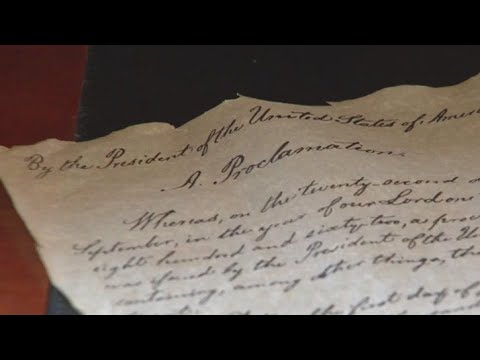 By the President of the United States of Americ
A. Proclamation.
Whereas, on the twenty-second
September, in the year of our Lord one
eight hundred and sixty-two, a proc
was issued by the President of the U
containing, among other things, the
the first day of